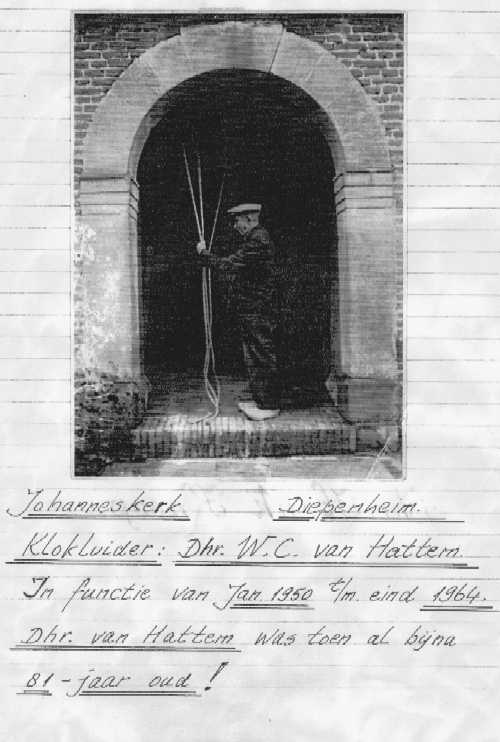 Johanneskerk Diepenheim.
Klokluider: Dhr. W.C. van Hattem.
In functie van Jan. 1950 t/m. eind 1964.
Dhr. van Hattem was toen al bijna
81-jaar oud!